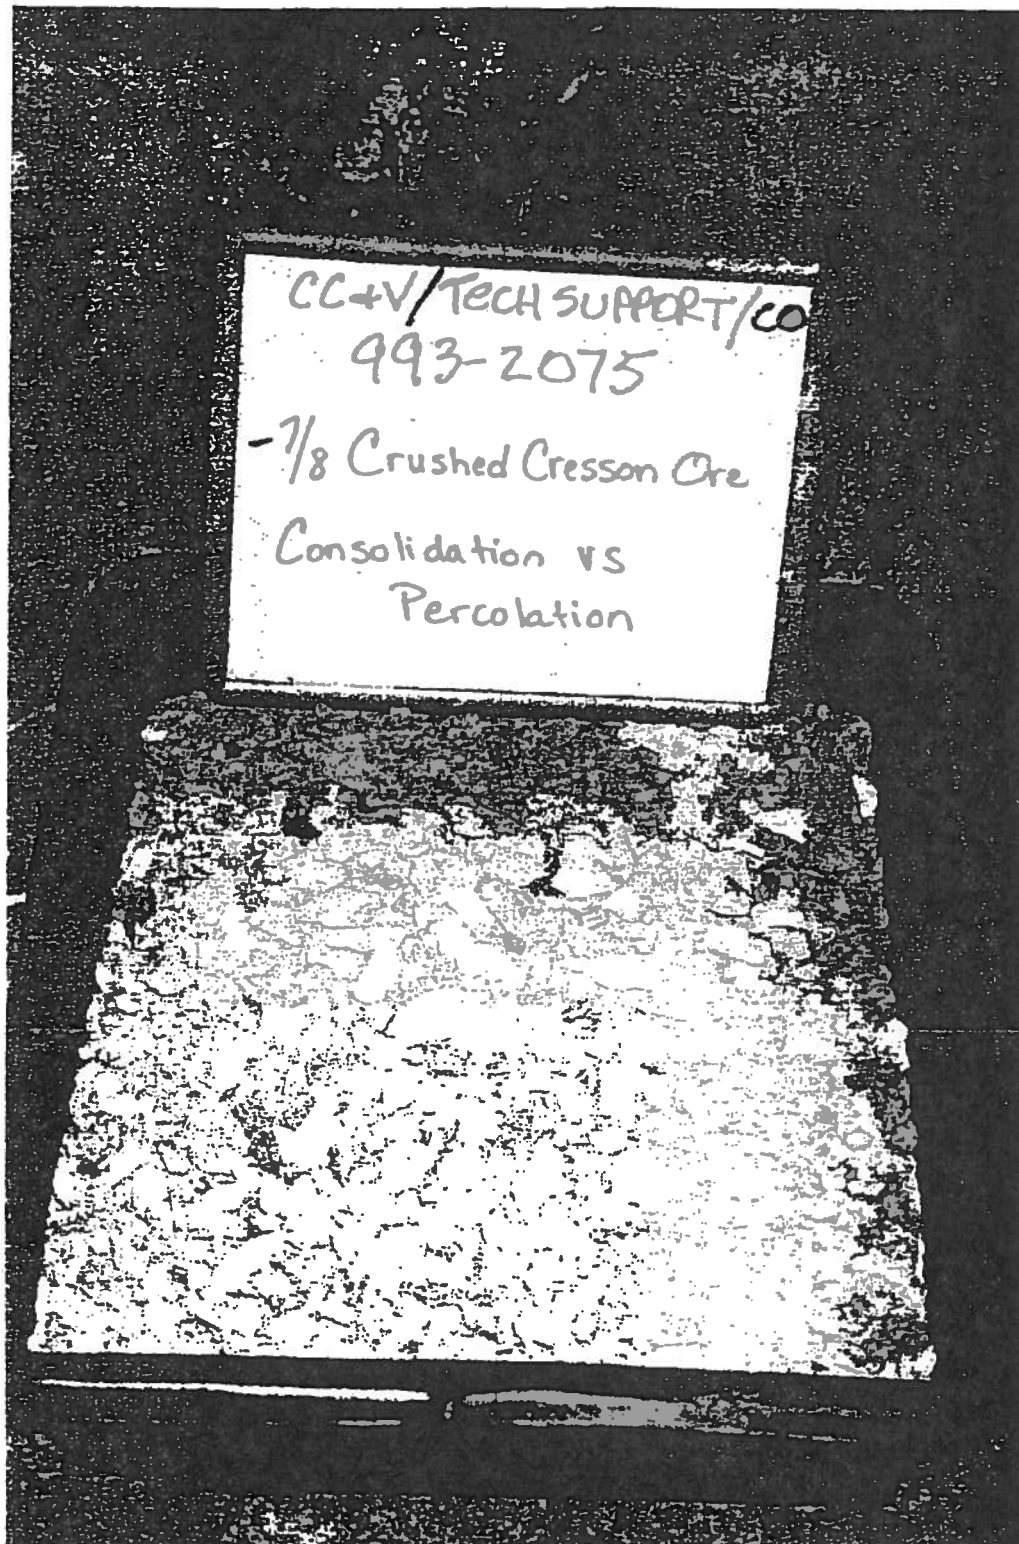 CC+V/TECH SUPPORT/CO
993-2075
-7/8 Crushed Cresson Ore
Consolidation vs
Percolation